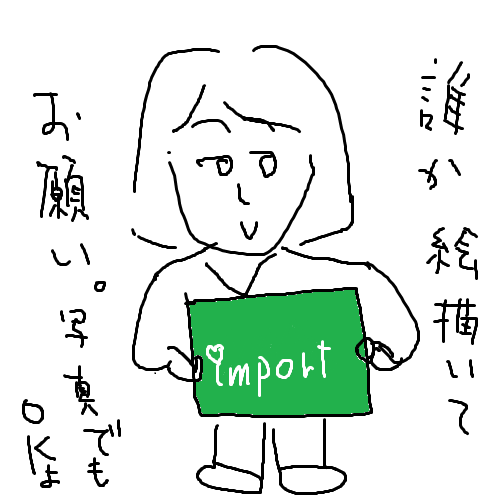 誰か絵描いて
お願い。写真でも
OKよ
import